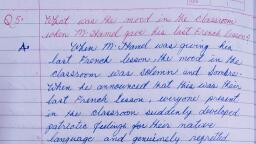 Q5. What was the mood in the classroom
when M. Hamel gave his last French lesson?
A. When M. Hamel was giving his
last French lesson, the mood in the
classroom was solemn and sombre.
When he announced that this was their
last French lesson, everyone present
in the classroom suddenly developed
patriotic feelings for their native
language and genuinely regretted